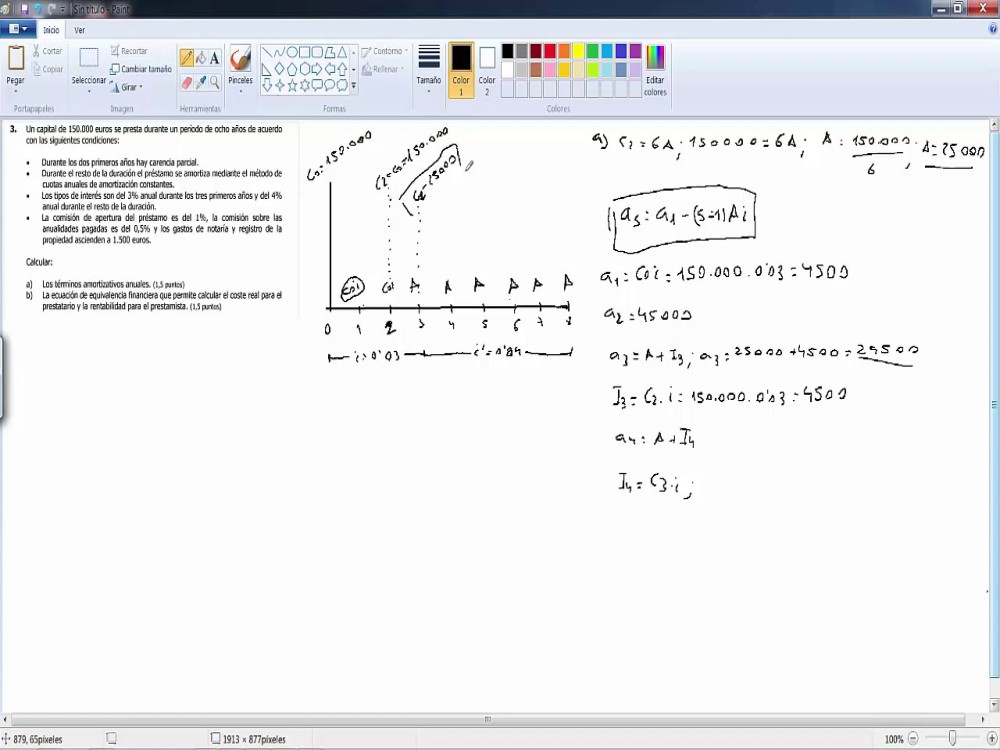 Sin título - Paint
Inicio Ver
Pegar
Cortar
Copiar
Portapapeles
Seleccionar
Recortar
Cambiar tamaño
Girar
Imagen
Herramientas
Pinceles
Contorno
Rellenar
Formas
Tamaño
Color 1
Color 2
Editar colores
Colores
3. Un capital de 150.000 euros se presta durante un periodo de ocho años de acuerdo
con las siguientes condiciones:
• Durante los dos primeros años hay carencia parcial.
• Durante el resto de la duración el préstamo se amortiza mediante el método de
cuotas anuales de amortización constantes.
• Los tipos de interés son del 3% anual durante los tres primeros años y del 4%
anual durante el resto de la duración.
• La comisión de apertura del préstamo es del 1%, la comisión sobre las
anualidades pagadas es del 0,5% y los gastos de notaría y registro de la
propiedad ascienden a 1.500 euros.
Calcular:
a) Los términos amortizativos anuales. (1,5 puntos)
b) La ecuación de equivalencia financiera que permite calcular el coste real para el
prestatario y la rentabilidad para el prestamista. (1,5 puntos)
C0=150.000
C2=C0=150.000
C0i C0i A A A A A A
0 1 2 3 4 5 6 7 8
i=0'03 i'=0'04
a) C2=6A; 150000=6A; A=150.000/6; A=25000
as=a1-(s-1)Ai
a1=C0i=150.000.0'03=4500
a2=4500
a3=A+I3; a3=25000+4500=29500
I3=C2.i=150.000.0'03=4500
a4=A+I4
I4=C3.i;
879, 65píxeles
1913 × 877píxeles
100%